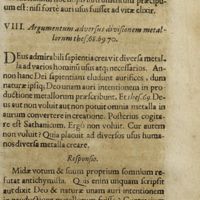 um est: ne forte auri usus fuisset ad vitæ elixir.
VIII. Argumentum adversus divisionem metal-
lorum thes. 68. 69. 70.
DEus admirabili sapientia creavit diversa metal-
la ad varios hominis usus atq; necessarios. An
non hanc Dei sapientiam eludunt aurifices, dum
naturæ ipsiq; Deo unam auri intentionem in pro-
ductione metallorum præscribunt. Et thes. 69. De-
us aut non voluit aut non potuit omnia metalla in
aurum convertere in creatione. Posterius cogita-
re est Sathanicum. Ergò non voluit. Cur autem
non voluit? Quia placuit ad diversos usus huma-
nos diversa metalla creare.
Responsio.
Mida votum & suum proprium somnium refu-
tat antichymista. Quis enim unquam scripsit
aut dixit Deo & naturæ unam auri intentionem